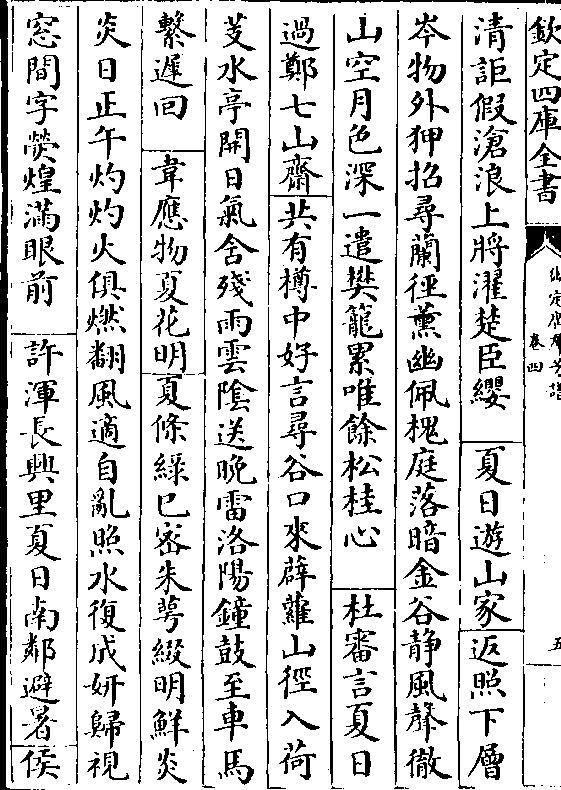 欽定四庫全書
卷四
五
清詎假滄浪上將濯楚臣纓　夏日遊山家返照下層
岑物外狎招尋蘭徑薰幽佩槐庭落暗金谷靜風聲徹
山空月色深一遣樊籠累唯餘松桂心　杜審言夏日
過鄭七山齋共有樽中好言尋谷口來薜蘿山徑入荷
芰水亭開日氣含殘雨雲陰送晚雷洛陽鐘鼓至車馬
繫遲回　韋應物夏花明夏條緑已宻朱蕚綴明鮮炎
炎日正午灼灼火俱燃翻風適自亂照水復成妍歸視
窓間字熒煌滿眼前　許渾長興里夏日南鄰避暑侯